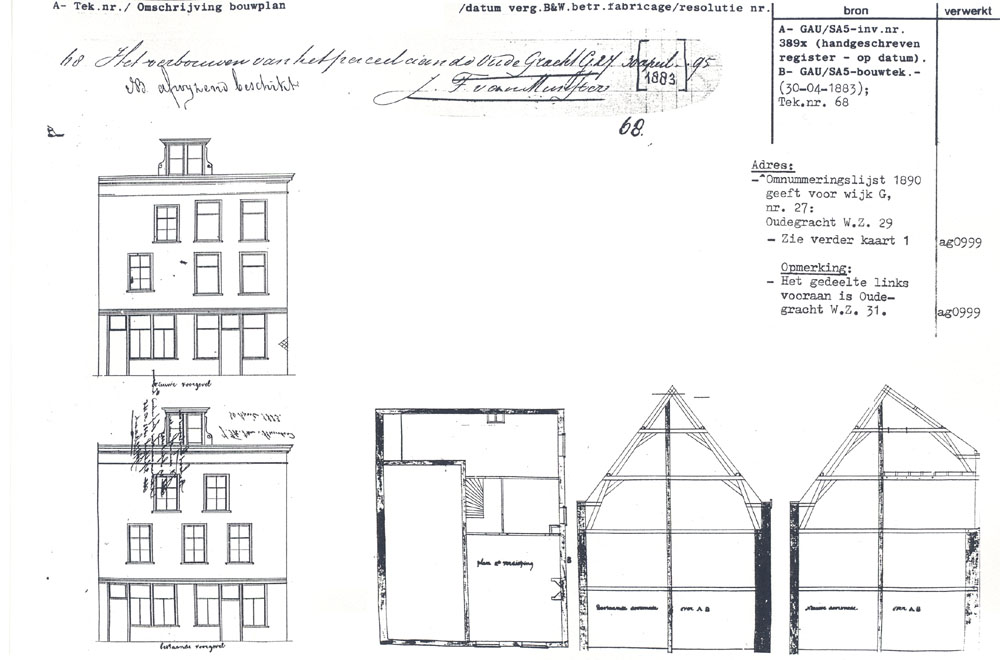 A- Tek.nr./ Omschrijving bouwplan /datum verg.B&W.betr.fabricage/resolutie nr.
bron
verwerkt
68 Het verbouwen van het perceel aan de Oude Gracht G.27 30 april - 95
[1883]
NB afwyzend beschikt
J. F. van Munster
68.
A- GAU/SA5-inv.nr.
389x (handgeschreven
register - op datum).
B- GAU/SA5-bouwtek.-
(30-04-1883);
Tek.nr. 68
B
Adres:
-^Omnummeringslijst 1890
geeft voor wijk G,
nr. 27:
Oudegracht W.Z. 29
- Zie verder kaart 1
ag0999
Opmerking:
- Het gedeelte links
vooraan is Oude-
gracht W.Z. 31.
ag0999
nieuwe voorgevel
bestaande voorgevel
plan 2e verdieping
B
Bestaande doorsnede over A B
nieuwe doorsnede over A B